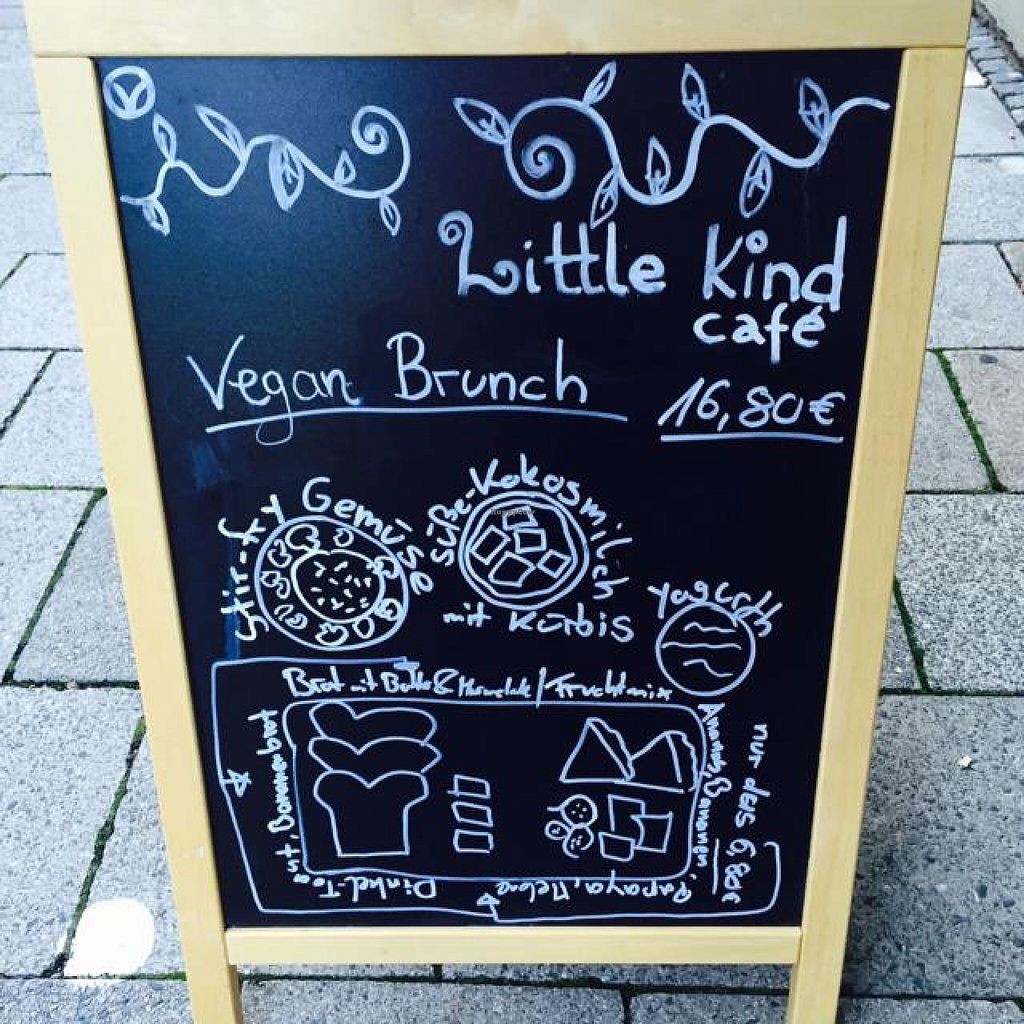 Little Kind
café
Vegan Brunch
16,80€
Stir-fry Gemüse
Süße-Kokosmilch
mit Kürbis
Yogurth
Brot mit Butter & Marmelade / Fruchtmix
Ananas, Bananen, Papaya, Melone
Dinkel-Toast, Bananenbrot
nur dies 6,80€